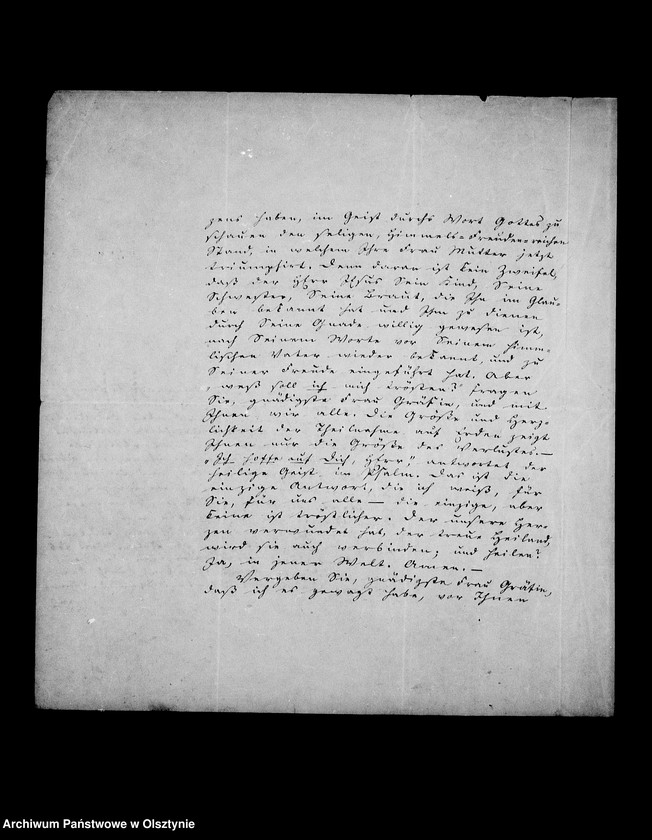 zens haben, im Geist durchs Wort Gottes zu
schauen den seligen, himmels-freudenreichen
Stand, in welchem Ihre Frau Mutter jetzt
triumphirt. Denn daran ist kein Zweifel,
daß der HErr JEsus Sein Kind, Seine
Schwester, Seine Braut, die Ihn im Glau-
ben bekannt hat und Ihm zu dienen
durch Seine Gnade willig gewesen ist,
nach Seinem Worte vor Seinem himm-
lischen Vater wieder bekannt, und zu
Seiner Freude eingeführt hat. Aber
„weß soll ich mich trösten? fragen
Sie, gnädigste Frau Gräfin, und mit
Ihnen wir alle. Die Größe und Herz-
lichkeit der Theilnahme auf Erden zeigt
Ihnen nur die Größe des Verlustes. —
„Ich hoffe auf Dich, HErr", antwortet der
heilige Geist im Psalm. Das ist die
einzige Antwort, die ich weiß, für
Sie, für uns alle — die einzige, aber
keine ist tröstlicher. Der unsere Her-
zen verwundet hat, der treue Heiland,
wird sie auch verbinden; und heilen?
Ja, in jener Welt. Amen. —
Vergeben Sie, gnädigste Frau Gräfin,
daß ich es gewagt habe, vor Ihnen
Archiwum Państwowe w Olsztynie